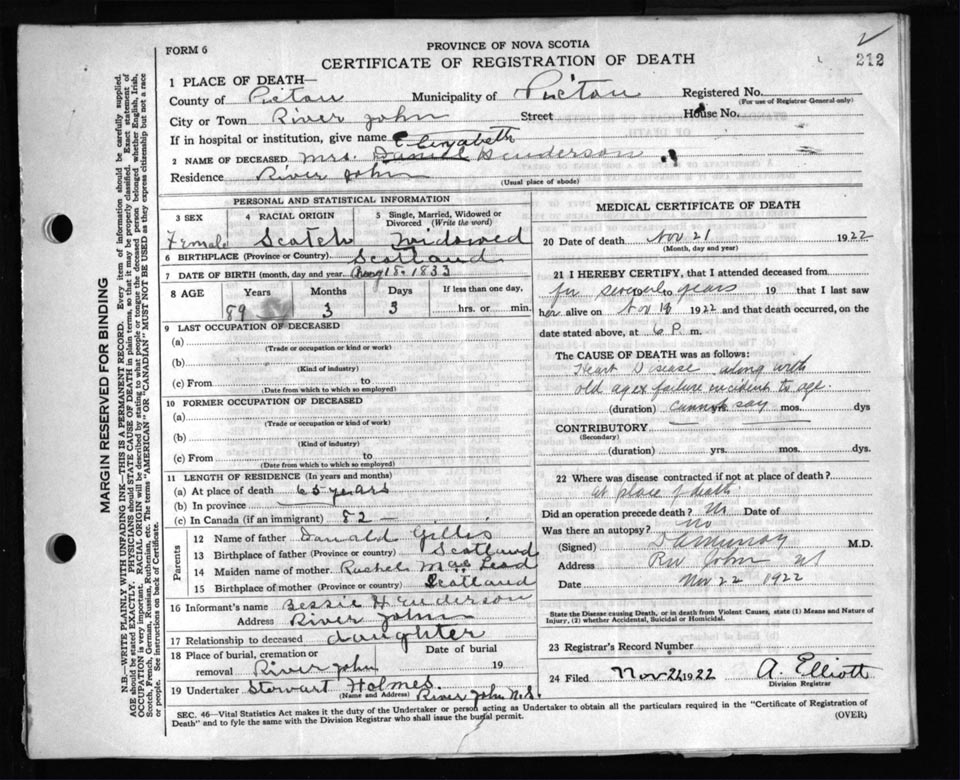 FORM 6
PROVINCE OF NOVA SCOTIA
CERTIFICATE OF REGISTRATION OF DEATH
212
1 PLACE OF DEATH—
County of Pictou Municipality of Pictou Registered No.
(For use of Registrar General only)
City or Town River John Street House No.
If in hospital or institution, give name
Elizabeth
2 NAME OF DECEASED Mrs. Daniel Henderson
Residence River John
(Usual place of abode)
PERSONAL AND STATISTICAL INFORMATION
3 SEX 4 RACIAL ORIGIN 5 Single, Married, Widowed or Divorced (Write the word)
Female Scotch Widowed
6 BIRTHPLACE (Province or Country) Scotland
7 DATE OF BIRTH (month, day and year) Aug 18 1833
8 AGE Years Months Days If less than one day,
89 3 3 hrs. or min.
9 LAST OCCUPATION OF DECEASED
(a)
(Trade or occupation or kind or work)
(b)
(Kind of industry)
(c) From to
(Date from which to which so employed)
10 FORMER OCCUPATION OF DECEASED
(a)
(Trade or occupation or kind of work)
(b)
(Kind of industry)
(c) From to
(Date from which to which so employed)
11 LENGTH OF RESIDENCE (In years and months)
(a) At place of death 65 years
(b) In province
(c) In Canada (if an immigrant) 82 —
Parents
12 Name of father Donald Gillis
13 Birthplace of father (Province or country) Scotland
14 Maiden name of mother Rachel MacLeod
15 Birthplace of mother (Province or country) Scotland
16 Informant's name Bessie Henderson
Address River John
17 Relationship to deceased daughter
18 Place of burial, cremation or removal River John Date of burial 19
19 Undertaker Stewart Holmes
(Name and Address) River John N.S.
MEDICAL CERTIFICATE OF DEATH
20 Date of death Nov 21 1922
(Month, day and year)
21 I HEREBY CERTIFY, that I attended deceased from
for several years 19 that I last saw
her alive on Nov 1922 and that death occurred, on
date stated above, at 6 P m.
The CAUSE OF DEATH was as follows:
Heart Disease along with
old age & failure incident to age.
(duration) cannot say yrs. mos. dys
CONTRIBUTORY
(Secondary)
(duration) yrs. mos. dys.
22 Where was disease contracted if not at place of death?
at place of death
Did an operation precede death? No Date of
Was there an autopsy? no
(Signed) M.D.
Address Riv John NS
Date Nov 22 1922
State the Disease causing Death, or in death from Violent Causes, state (1) Means and Nature of Injury, (2) whether Accidental, Suicidal or Homicidal.
23 Registrar's Record Number
24 Filed Nov. 1922 A. Elliott
Division Registrar
SEC. 46—Vital Statistics Act makes it the duty of the Undertaker or person acting as Undertaker to obtain all the particulars required in the "Certificate of Registration of
Death" and to fyle the same with the Division Registrar who shall issue the burial permit.
(OVER)
MARGIN RESERVED FOR BINDING
N.B.—WRITE PLAINLY WITH UNFADING INK—THIS IS A PERMANENT RECORD. Every item of information should be carefully supplied.
AGE should be stated EXACTLY. PHYSICIANS should STATE CAUSE OF DEATH in plain terms, so that it may be properly classified. Exact statement of
OCCUPATION is very important. RACIAL ORIGIN will be described by stating to what people or tongue the deceased person belonged whether English, Irish,
Scotch, French, German, Russian, Ruthenian, etc. The terms "AMERICAN" OR "CANADIAN" MUST NOT BE USED as they express citizenship but not a race
or people. See instructions on back of Certificate.